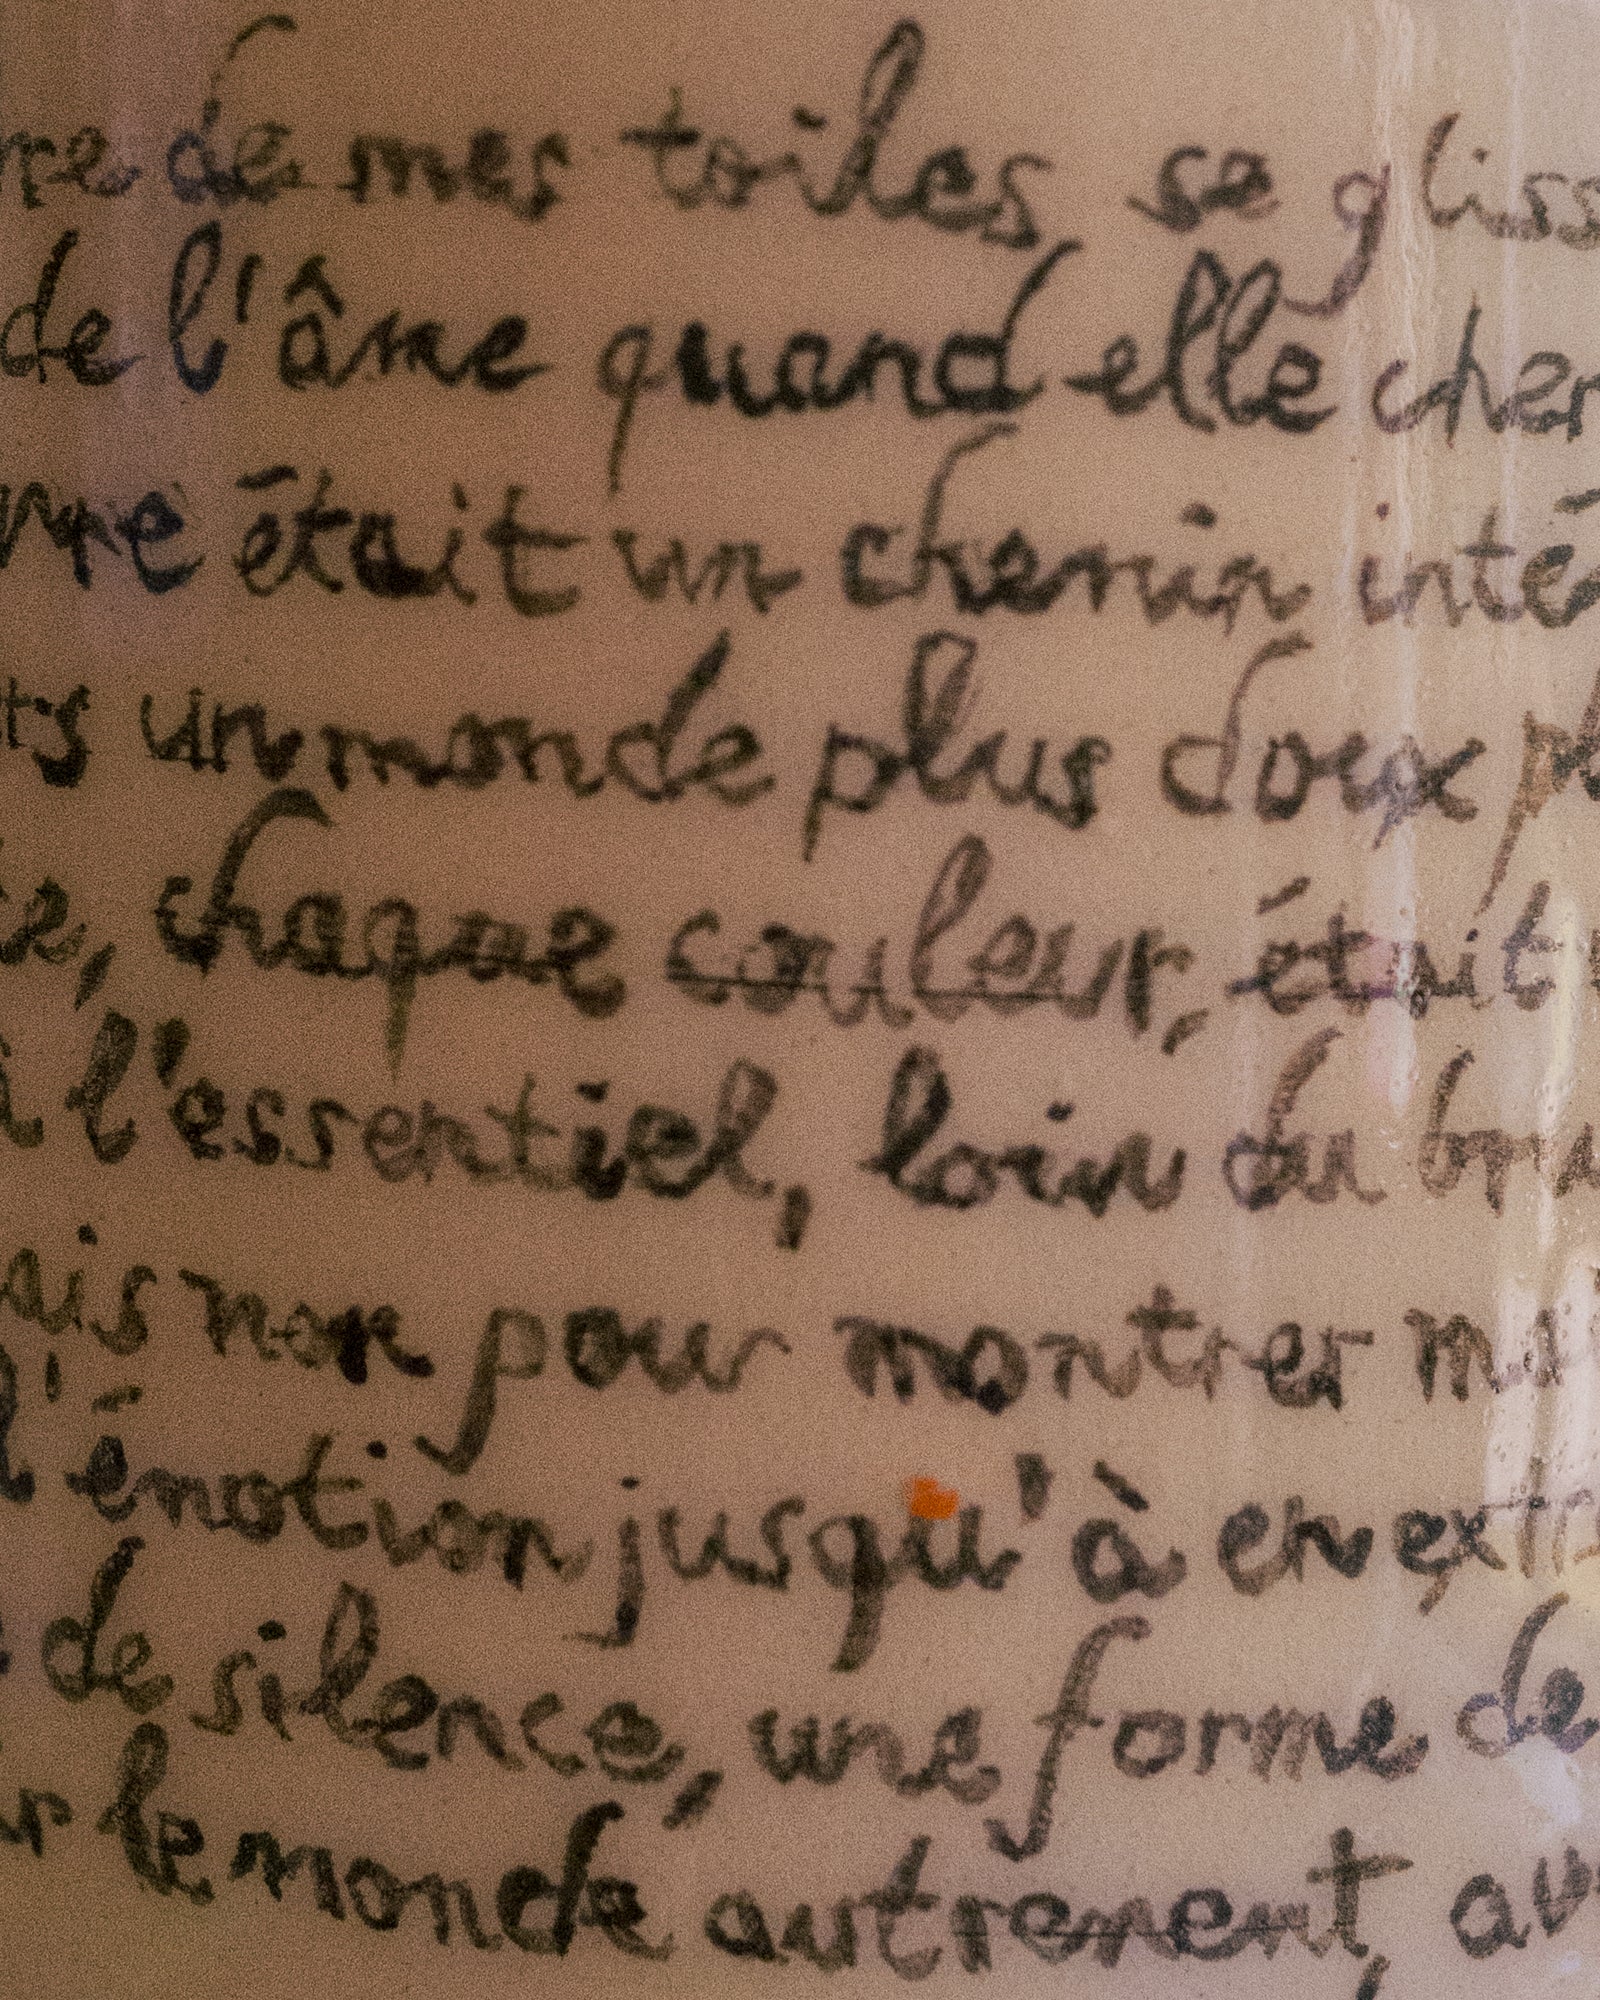 de mes toiles, se gliss
de l'âme quand elle cher
était un chemin inté
ts un monde plus doux pl
chaque couleur, était
à l'essentiel, loin du bru
ais non pour montrer ma
l'émotion jusqu'à en extr
de silence, une forme de
le monde autrement, av